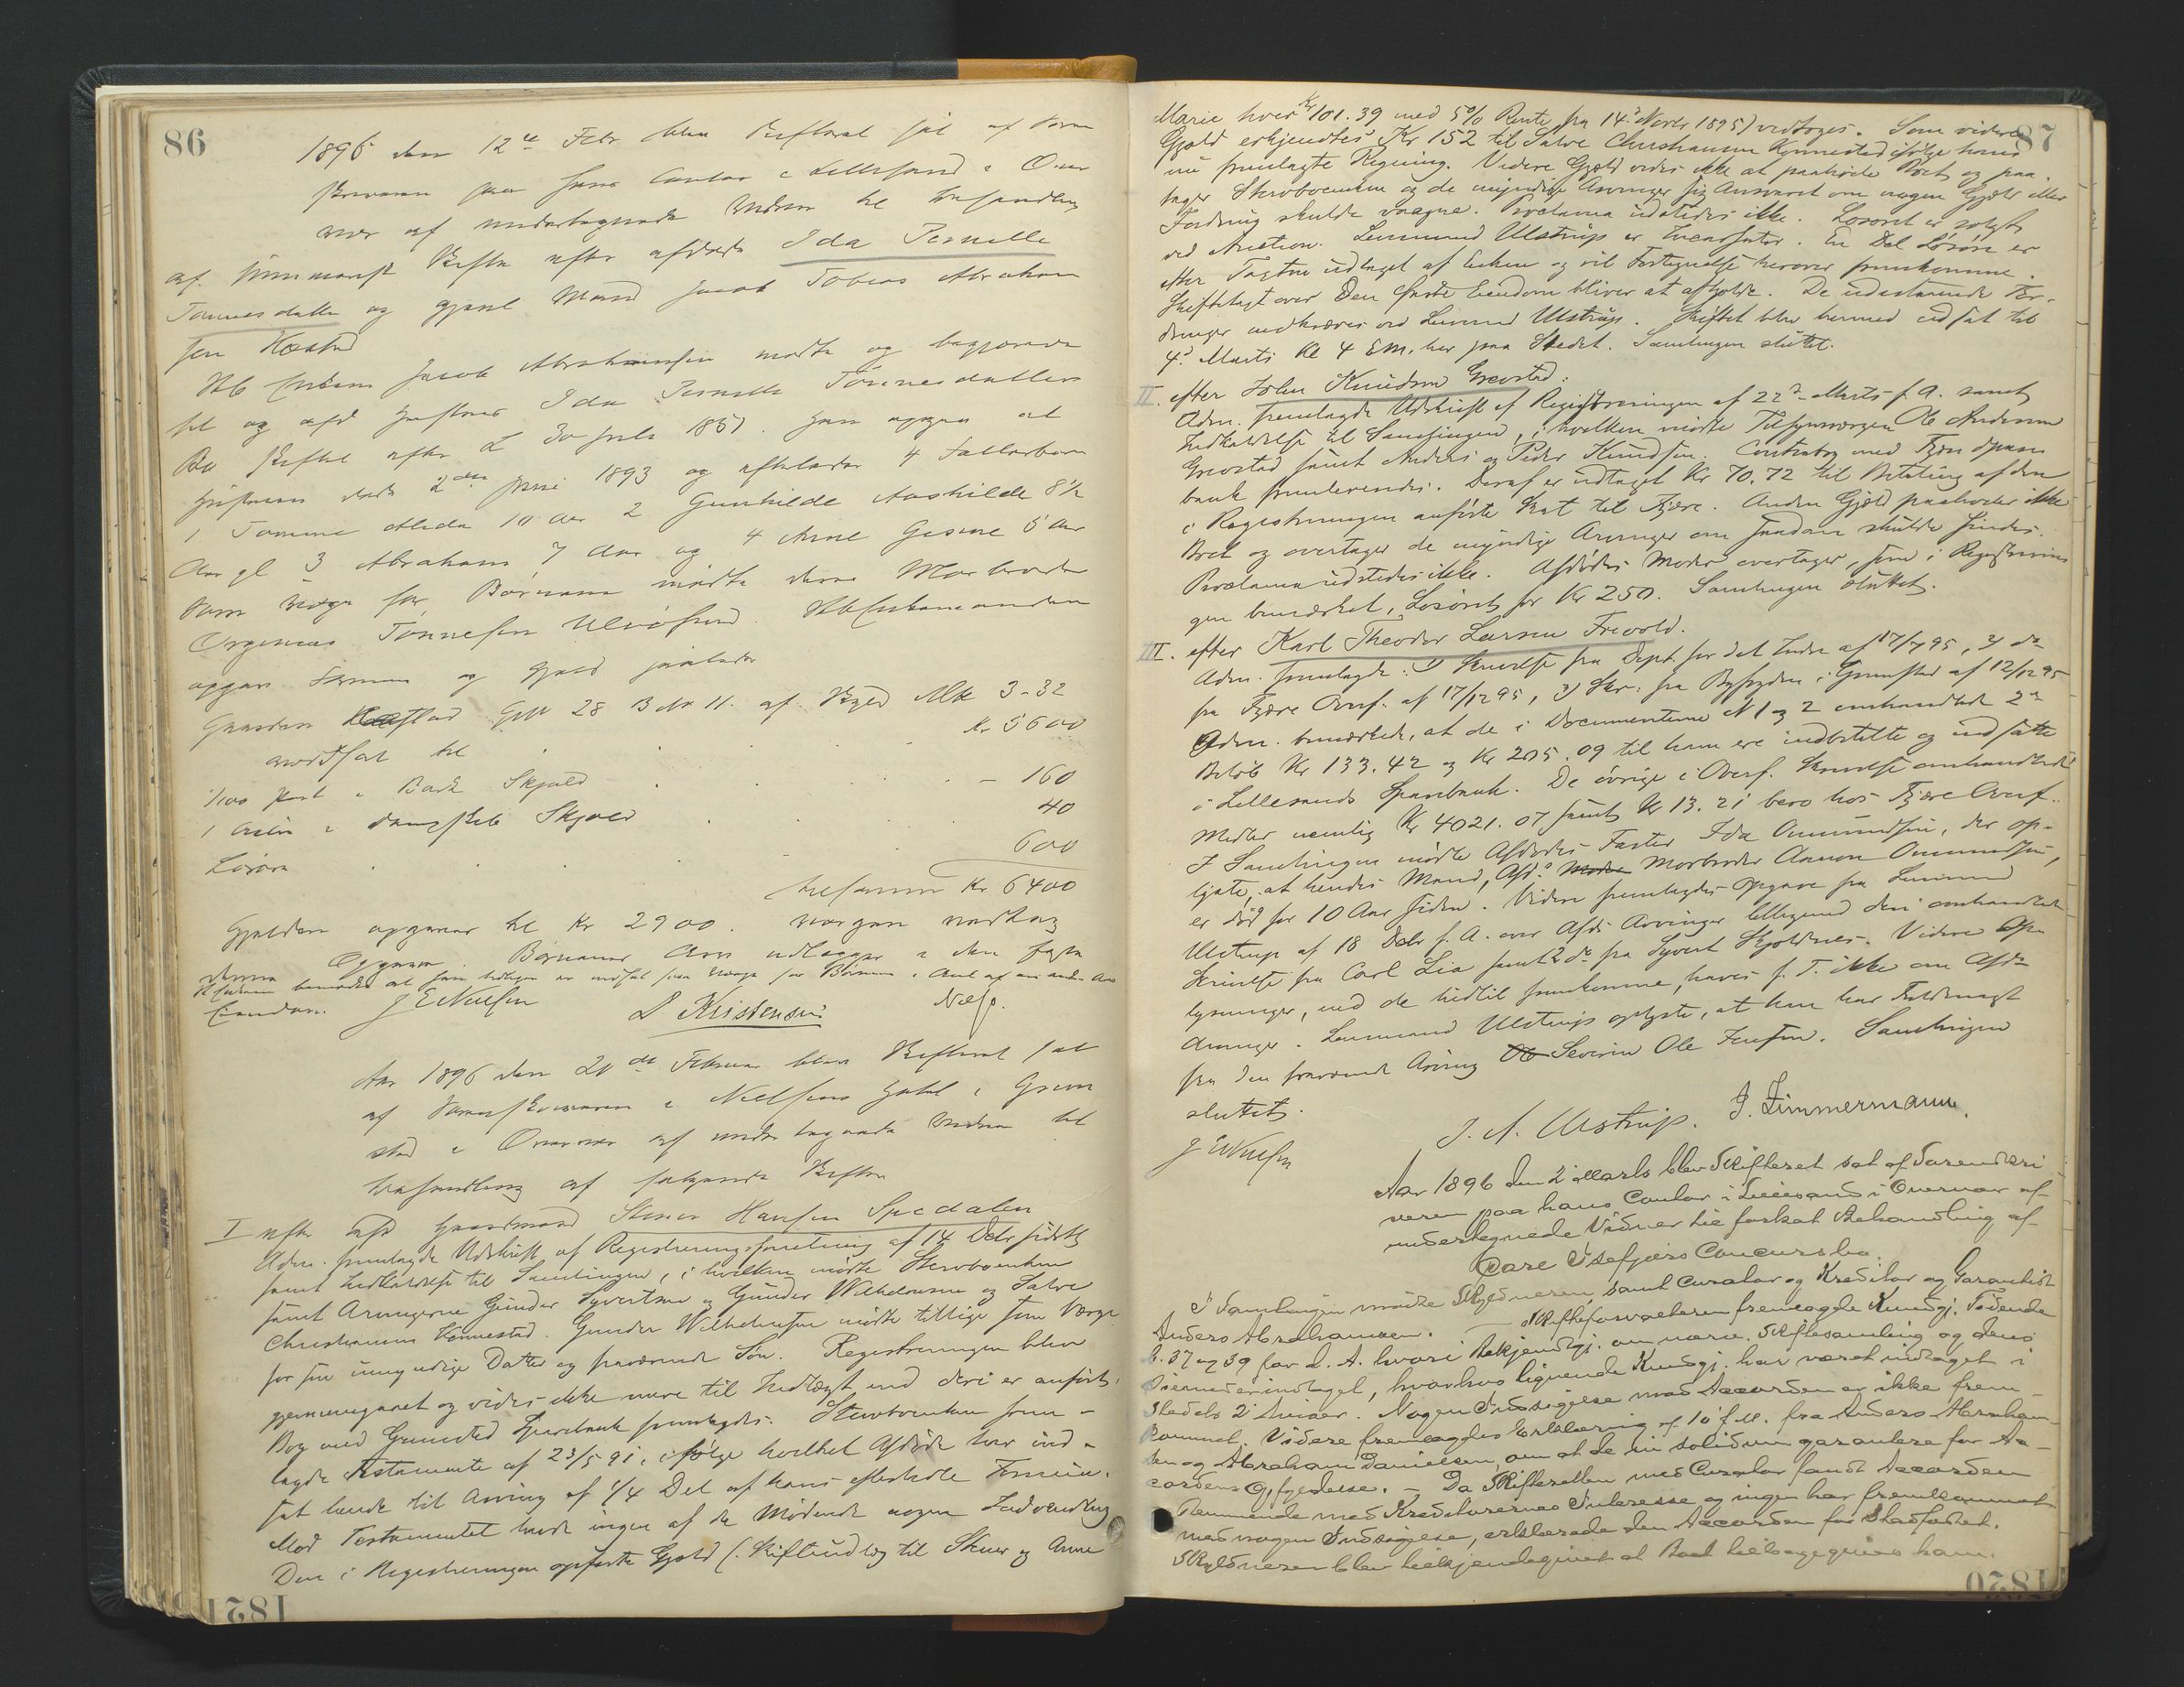 86
1896 den 12te Febr blev Skifteret sat af Soren
skriveren paa hans Contor i Lillesand i Over
vær af undertegnede Vidner til Behandling
af Summarisk Skifte efter afdøde Ida Pernille
Tønnesdatter og gjenl Mand Jacob Tobias Abraham
sen
Jacob Abrahamsen mødte og begjærede
sit og afd Hustrues Ida Pernille Tønnesdatters
Bo skiftet efter L 30 Juli 1851. Han opgav at
Hustruen døde 2den Juni 1893 og efterlader 4 Fællesbørn
1 Tomine Alida 10 Aar 2 Gunhilde Aashilde 8½
Aar gl 3 Abraham 7 Aar og 4 Arne Gesine 5 Aar
Som Værge for Børnene mødte deres Morbroder
Tønnesen Ulvøsund. Enkemanden
opgav Formue og Gjæld saaledes
Gaarden G.No 28 B No 11. af Skyld Mk 3-32
værdsat til . . . . Kr 5600
1/100 Part i Bark Skjold . . . . - 160
1 Actie i Dampskib Skjold . . . . 40
Løsøre . . . . 600
tilsammen Kr 6400
Gjælden opgaves til Kr 2900. Værgen vedtog
denne Opgave. Børnenes Arv udlægges i den faste
Eiendom. J E Nielsen
S. Kristensen
Aar 1896 den 20de Februar blev Skifteret sat
af Sorenskriveren i Nielsens Hotel i Grim
stad i Overvær af undertegnede Vidner til
Behandling af følgende Skifter
I efter afd Gaardmand Hansen Spedalen
Adm. fremlagde Udskrift af Registreringsforretning af 14 Decbr sidstl
samt Indkaldelse til Samlingen, i hvilken mødte Stervboenken
samt Arvingerne Gunder Syvertsen og Gunder Wilhelmsen og Salve
Christiansen Konnestad. Gunder Wilhelmsen mødte tillige som Værge
for sin umyndige Datter og fraværende Søn. Registreringen blev
gjennemgaaet og vides ikke mere til Indtægt end deri er anført.
Bog med Grimstad Sparebank fremlagdes. Stervboenken frem-
lagde Testamente af 23/5 91, ifølge hvilket Afdøde har ind-
sat hende til Arving af 1/4 Del af hans efterladte Formue.
Mod Testamentet havde ingen af de Mødende nogen Indvending
Den i Registreringen opførte Gjæld (Skifteudlæg til og Anne
1821
87
Marie hver Kr 101.39 med 5% Rente fra 14de Novbr 1895) vedtoges. Som videre
Gjæld erkjendtes Kr 152 til Salve Christiansen Konnestad ifølge hans
nu fremlagte Regning. Videre Gjæld vides ikke at paahvile Boet og paa-
tager Stervboenken og de myndige Arvinger sig Ansvaret om nogen Gjæld eller
Fordring skulde vaagne. Proclama udstedes ikke. Løsøret er solgt
ved Auction. Lensmand Ulstrup er Incassator. En Del Løsøre er
efter Taxten udtaget af Enken og vil Fortegnelse herover fremkomme.
Skiftetaxt over den faste Eiendom bliver at afholde. De udestaaende For-
dringer indkræves ved Lensmd Ulstrup. Skiftet blev hermed udsat til
4de Marts Kl 4 EM. her paa Stedet. Samlingen sluttet.
II. efter John Knudsen Grevstad:
Adm. fremlagde Udskrift af Registreringen af 22de Marts f. A. samt
Indkaldelse til Samlingen, i hvilken mødte Tilsynsværgen Ole Andersen
Grevstad samt Anders og Peder Knudsen. Contrabog med Fjære Spare
bank fremleveredes. Deraf er udtaget Kr 70.72 til Betaling af den
i Registreringen anførte Skat til Fjære. Anden Gjæld paahviler ikke
Boet og overtager de myndige Arvinger om saadan skulde findes.
Proclama udstedes ikke. Afdødes Moder overtager, som i Registrerin
gen bemærket, Løsøret for Kr 250. Samlingen sluttet.
III. efter Karl Theodor Larsen Frivold.
Adm. fremlagde: 1) Skrivelse fra Dept. for det Indre af 17/7 95, 2) do
fra Fjære Overf. af 17/12 95, 3) Skr. fra Byfogden i Grimstad af 12/12 95
Adm. bemærkede, at de i Documenterne N 1 og 2 omhandlede 2de
Beløb Kr 133.42 og Kr 205.09 til ham ere indbetalte og indsatte
i Lillesands Sparebank. De øvrige i Overf. Skrivelse omhandlede
Midler nemlig Kr 4021.07 samt Kr 13.21 bero hos Fjære Overf.
I Samlingen mødte Afdødes Faster Ida Omundsen, der op-
lyste, at hendes Mand, Afds Morbroder Aanon Omundsen,
er død for 10 Aar siden. Videre fremlagdes Opgave fra Lensmd
Ulstrup af 18 Decbr f. A. over Afds Arvinger tilligemed deri omhandlet
Skrivelse fra Carl Lia samt 2 do fra Syvert Skjoldnes. Videre Op-
lysninger, end de hidtil fremkomne, haves p. T. ikke om Afds
Arvinger. Lensmand Ulstrup oplyste, at han har Fuldmagt
fra den fraværende Arving Severin Ole Jensen. Samlingen
sluttet.
J E Nielsen J. A. Ulstrup. J. Zimmermann.
Aar 1896 den 2 Marts blev Skifteret sat af Sorenskri
veren paa hans Contor i Lillesand i Overvær af
undertegnede Vidner til fortsat Behandling af
Isefjærs Concursbo.
I Samlingen mødte Skyldneren, samt Curator og Kreditor og Garantist
Anders Abrahamsen. — Skifteforvalteren fremlagde Kundgj. Tidende
N. 37 og 39 for d. A. hvori Bekjendtgj. om nærv. Skiftesamling og dens
Øiemed er indtaget, hvorhos lignende Kundgj. har været indtaget i
Stedets 2 Aviser. Nogen Indsigelse mod Accorden er ikke frem-
kommet. Videre fremlagdes Erklæring af 10 f. M. fra Anders Abraham-
sen og Abraham Danielsen, om at de in solidum garantere for Ac-
cordens Opfyldelse. — Da Skifteretten med Curator fandt Accorden
stemmende med Kreditorernes Interesse og ingen har fremkommet
med nogen Indsigelse, erklærede den Accorden for stadfæstet.
Skyldneren blev tilkjendegivet at Boet tilbagegives ham.
1820